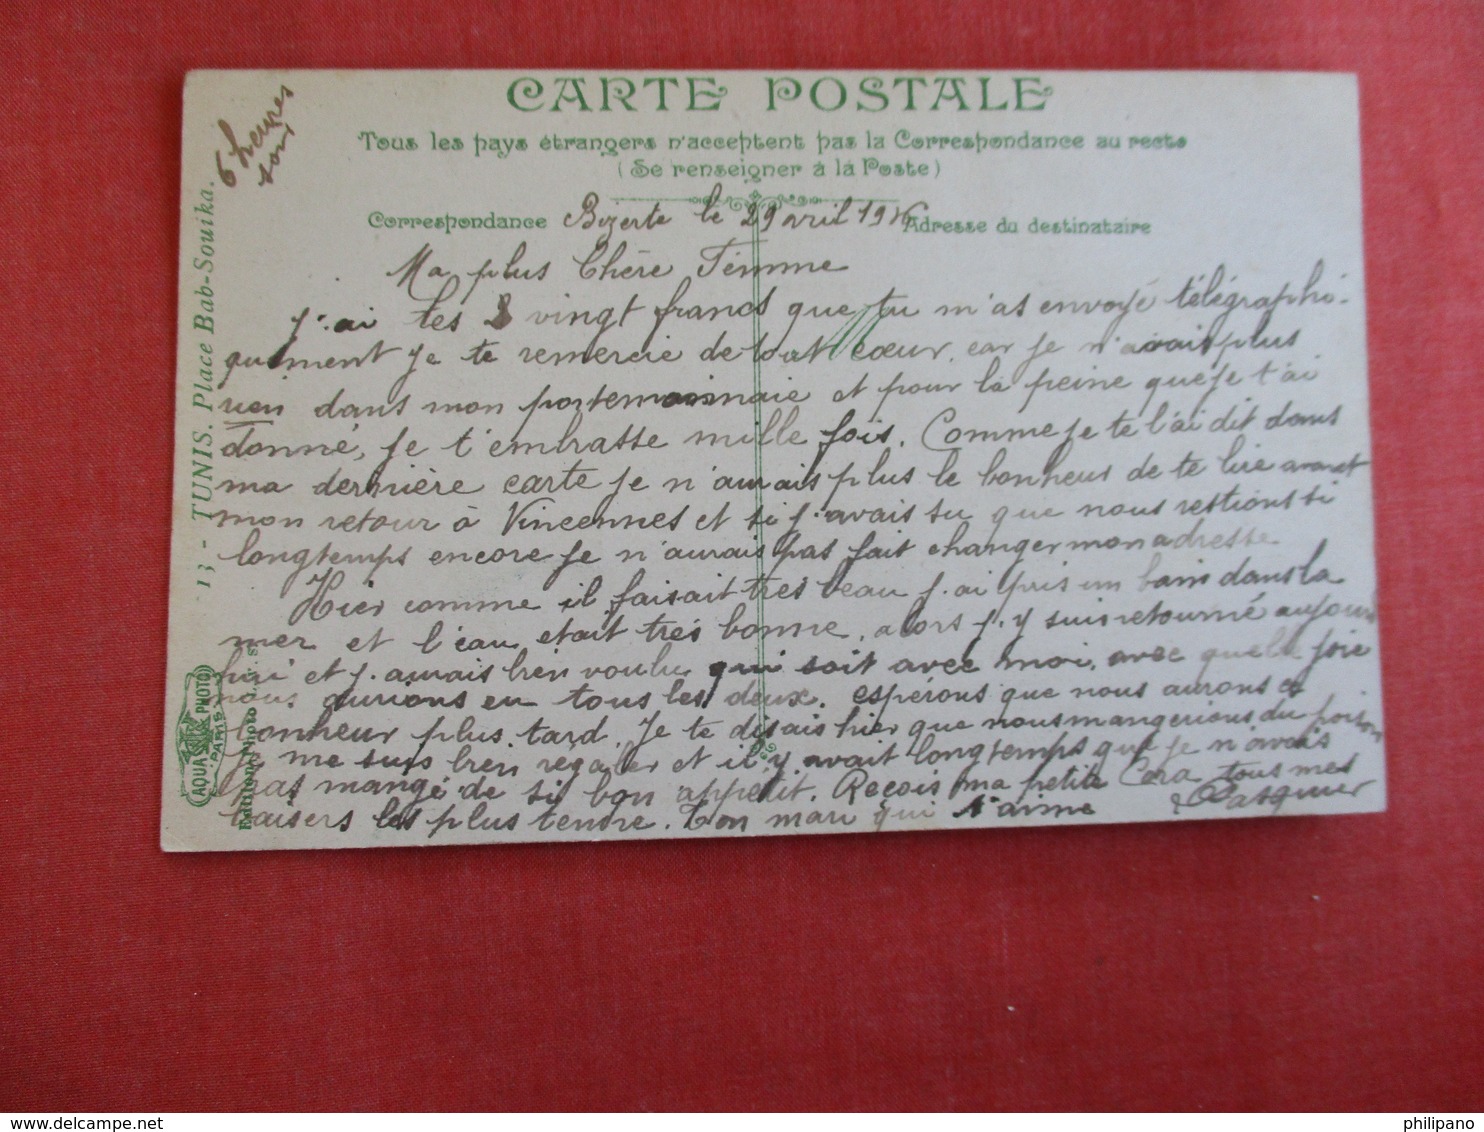 CARTE POSTALE
Tous les pays étrangers n'acceptent pas la Correspondance au recto
(Se renseigner à la Poste)
6 heures
soir
Correspondance
Bizerte le 29 avril 19
Adresse du destinataire
Ma plus Chère Femme
J'ai les vingt francs que tu m'as envoyé télégraphi-
quement je te remercie de tout cœur, car je n'avais plus
rien dans mon portemonnaie et pour la peine que je t'ai
donné, je t'embrasse mille fois. Comme je te l'ai dit dans
ma dernière carte je n'aurais plus le bonheur de te lire avant
mon retour à Vincennes et si j'avais su que nous restions si
longtemps encore je n'aurais pas fait changer mon adresse
Hier comme il faisait très beau j'ai pris un bain dans la
mer et l'eau etait très bonne, alors j'y suis retourné aujour
hui et j'aurais bien voulu qui soit avec moi, avec quelle joie
nous aurions eu tous les deux. espérons que nous aurons ce
bonheur plus tard. Je te disais hier que nous mangerions du poisson
je me suis bien régaler et il y avait longtemps que je n'avais
pas mangé de si bon appétit. Reçois ma petite Cara tous mes
baisers les plus tendre. Ton mari qui t'aime Pasquier
13 - TUNIS. Place Bab-Souika.
AQUA PHOTO
PARIS
Edition Photo
philipano